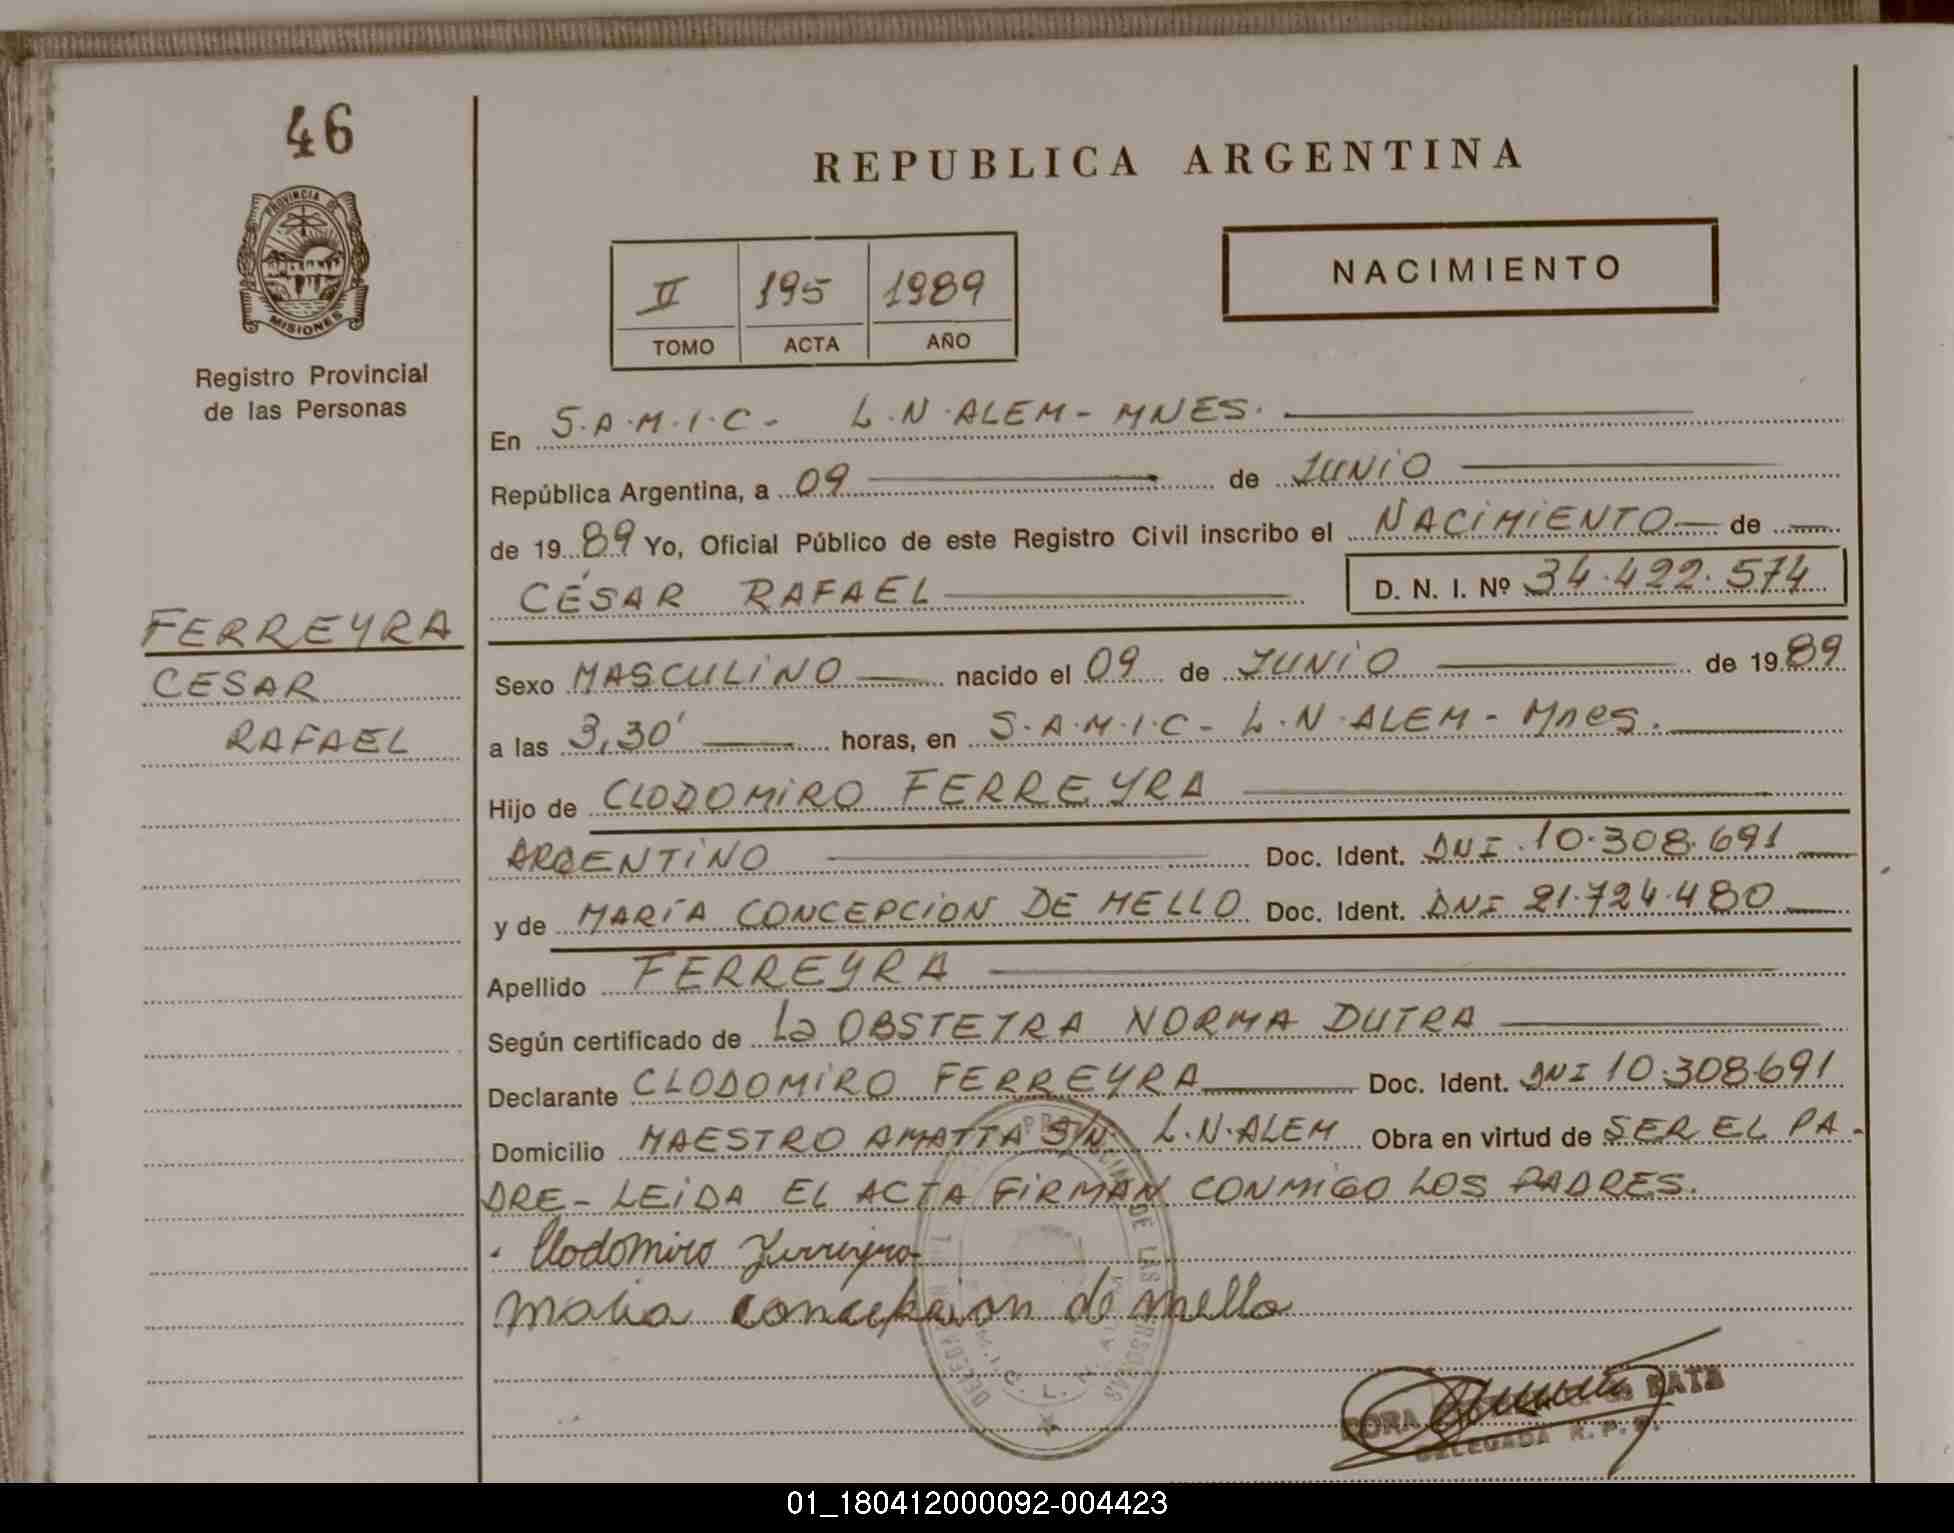 46
REPUBLICA ARGENTINA
PROVINCIA DE
MISIONES
Registro Provincial
de las Personas
II 195 1989
TOMO ACTA AÑO
NACIMIENTO
En S.A.M.I.C- L.N.ALEM- MNES.
República Argentina, a 09 de JUNIO
de 1989 Yo, Oficial Público de este Registro Civil inscribo el NACIMIENTO de
CÉSAR RAFAEL D. N. I. Nº 34.422.574
FERREYRA
CESAR
RAFAEL
Sexo MASCULINO nacido el 09 de JUNIO de 1989
a las 3,30' horas, en S.A.M.I.C- L.N.ALEM- Mnes.
Hijo de CLODOMIRO FERREYRA
ARGENTINO Doc. Ident. DNI 10.308.691
y de MARÍA CONCEPCION DE MELLO Doc. Ident. DNI 21.724.480
Apellido FERREYRA
Según certificado de La OBSTETRA NORMA DUTRA
Declarante CLODOMIRO FERREYRA Doc. Ident. DNI 10.308.691
Domicilio MAESTRO AMATTA S/N. L.N.ALEM Obra en virtud de SER EL PA-
DRE- LEIDA EL ACTA FIRMAN CONMIGO LOS PADRES.
Clodomiro Ferreyra
maria concepcion de mello
DORA BATZ
DELEGADA R.P.P.
01_180412000092-004423